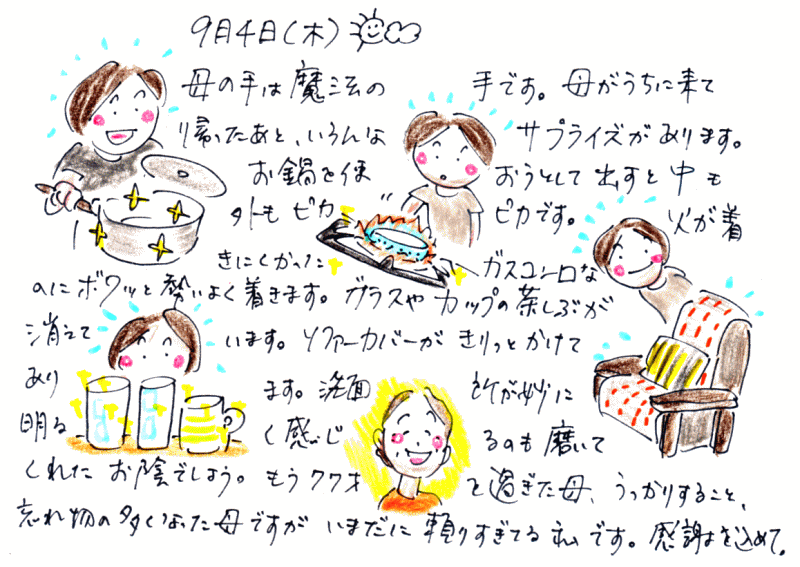 9月4日(木)
母の手は魔法の手です。母がうちに来て
帰ったあと、いろんなサプライズがあります。
お鍋を使おうとして出すと中も
外もピカピカです。火が着
きにくかったガスコンロな
のにボワッと勢いよく着きます。グラスやカップの茶しぶが
消えています。ソファーカバーがきりっとかけて
あります。洗面台が妙に
明るく感じるのも磨いて
くれたお陰でしょう。もう77才と過ぎた母、うっかりすること、
忘れ物の多くなった母ですがいまだに頼りすぎてる私です。感謝を込めて。